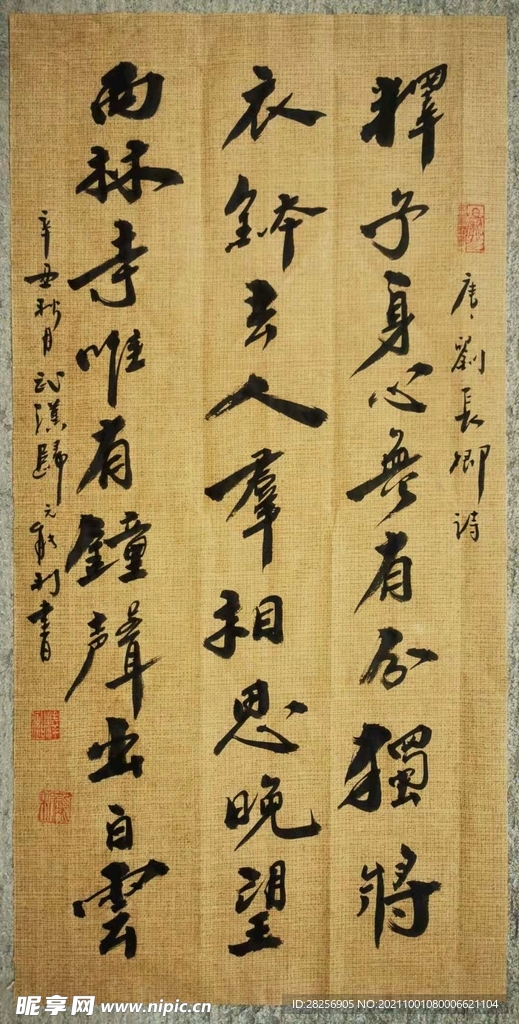 唐劉長卿詩
釋子身心無有分獨將
衣鉢去人羣相思晚望
西林寺唯有鐘聲出白雲
辛丑秋月武漢歸元利書
昵享网 www.nipic.cn
ID:28256905 NO:20211001080006621104